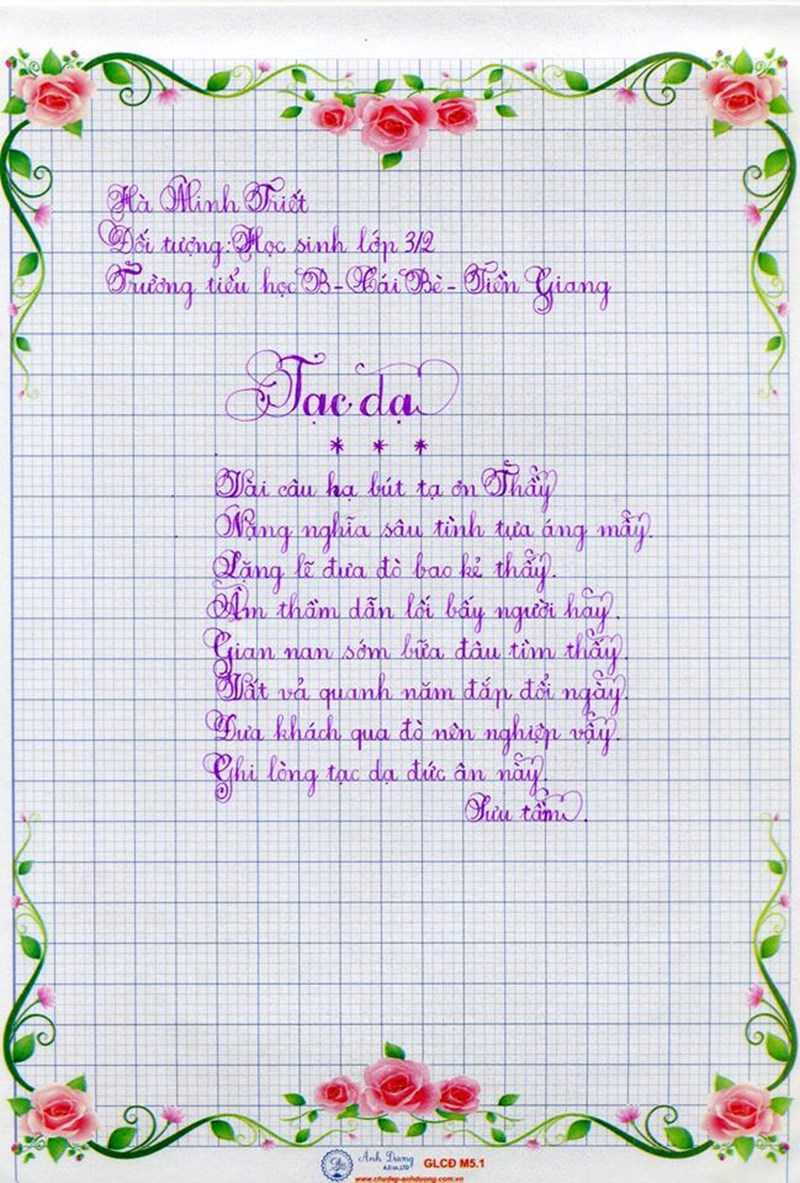 Hà Minh Triết
Đối tượng: Học sinh lớp 3/2
Trường tiểu học B - Cái Bè - Tiền Giang
Tạc dạ
* * *
Vài câu hạ bút tạ ơn Thầy
Nặng nghĩa sâu tình tựa áng mây.
Lặng lẽ đưa đò bao kẻ thấy.
Âm thầm dẫn lối bấy người hay.
Gian nan sớm bữa đâu tìm thấy.
Vất vả quanh năm đắp đổi ngày.
Đưa khách qua đò nên nghiệp vậy.
Ghi lòng tạc dạ đức ân này.
Sưu tầm.
Ánh Dương GLCĐ M5.1
www.chudep-anhduong.com.vn